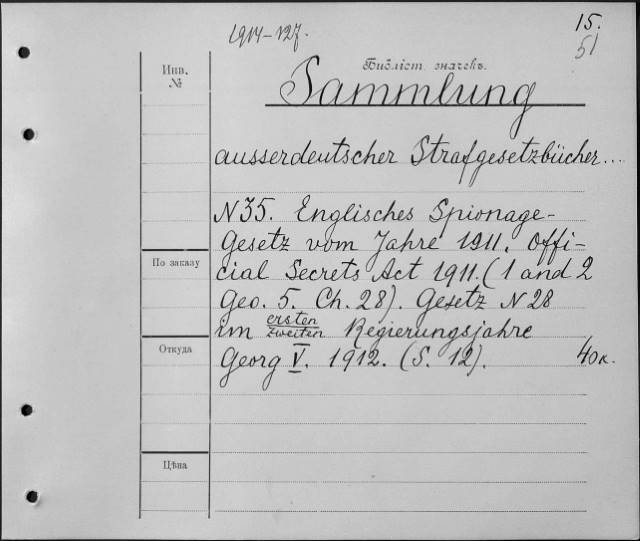 1914-127.
15.
51
Инв.
№
Библіот. значекъ.
Sammlung
ausserdeutscher Strafgesetzbücher...
N 35. Englisches Spionage-
Gesetz vom Jahre 1911. Offi-
cial Secrets Act 1911. (1 and 2
Geo. 5. Ch. 28). Gesetz N 28
im ersten
zweiten Regierungsjahre
Georg V. 1912. (S. 12). 40к.
По заказу
Откуда
Цѣна